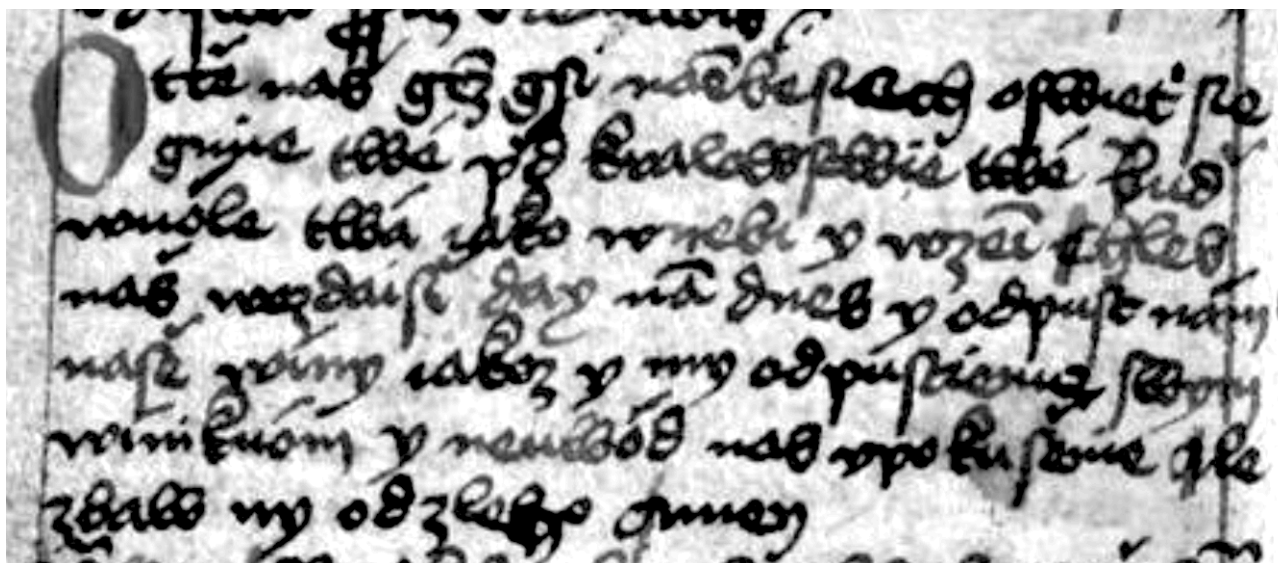 Otcě náš gēz gsi na nebesiech osswieť sie
gmie twé prziď králowstwie twé Buď
wuole twá iako w nebi y w zemi Chleb
náš wezdaiší day nā dnes y odpusť nám
naše winy iakoz y my odpúsciemy swým
winikuóm y neuwóď nas v pokušenie Ale
zbaw ny od zlého Amen